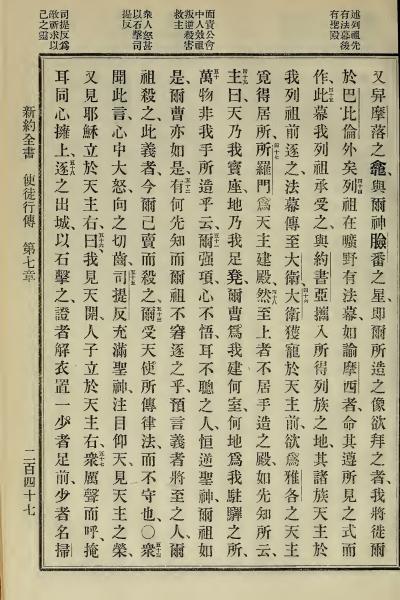 述列祖先
有法幕後
有聖殿
面責公會
中人效祖
叛逆殺害
救主
衆人怒甚
以石擊司
提反
司提反爲
敵所求以
己之靈
又舁摩落之龕與爾神臉番之星、即爾所造之像欲拜之者、我將徙爾
於巴比倫外矣、列祖在曠野有法幕、如諭摩西者命其遵所見之式而
作、此幕我列祖承受之、與約書亞攜入所得列族之地、其諸族天主於
我列祖前逐之、法幕傳至大衛、大衛獲寵於天主前、欲爲雅各之天主
覓得居所、所羅門爲天主建殿、然至上者不居手造之殿、如先知所云、
主曰、天乃我寶座、地乃我足凳、爾曹爲我建何室、何地爲我駐驆之所、
萬物非我手所造乎云、爾強項、心不悟、耳不聰之人、恒逆聖神、爾祖如
是、爾曹亦如是、有何先知而爾祖不窘逐之乎、預言義者將至之人、爾
祖殺之、此義者今爾已賣而殺之、爾受天使所傳律法而不守也、○衆
聞此言、心中大怒、向之切齒、司提反充滿聖神、注目仰天、見天主之榮、
又見耶穌立於天主右、曰、我見天開、人子立於天主右、衆厲聲而呼、掩
耳同心擁上、逐之出城、以石擊之、證者解衣置一少者足前、少者名掃
新約全書 使徒行傳 第七章
二百四十七